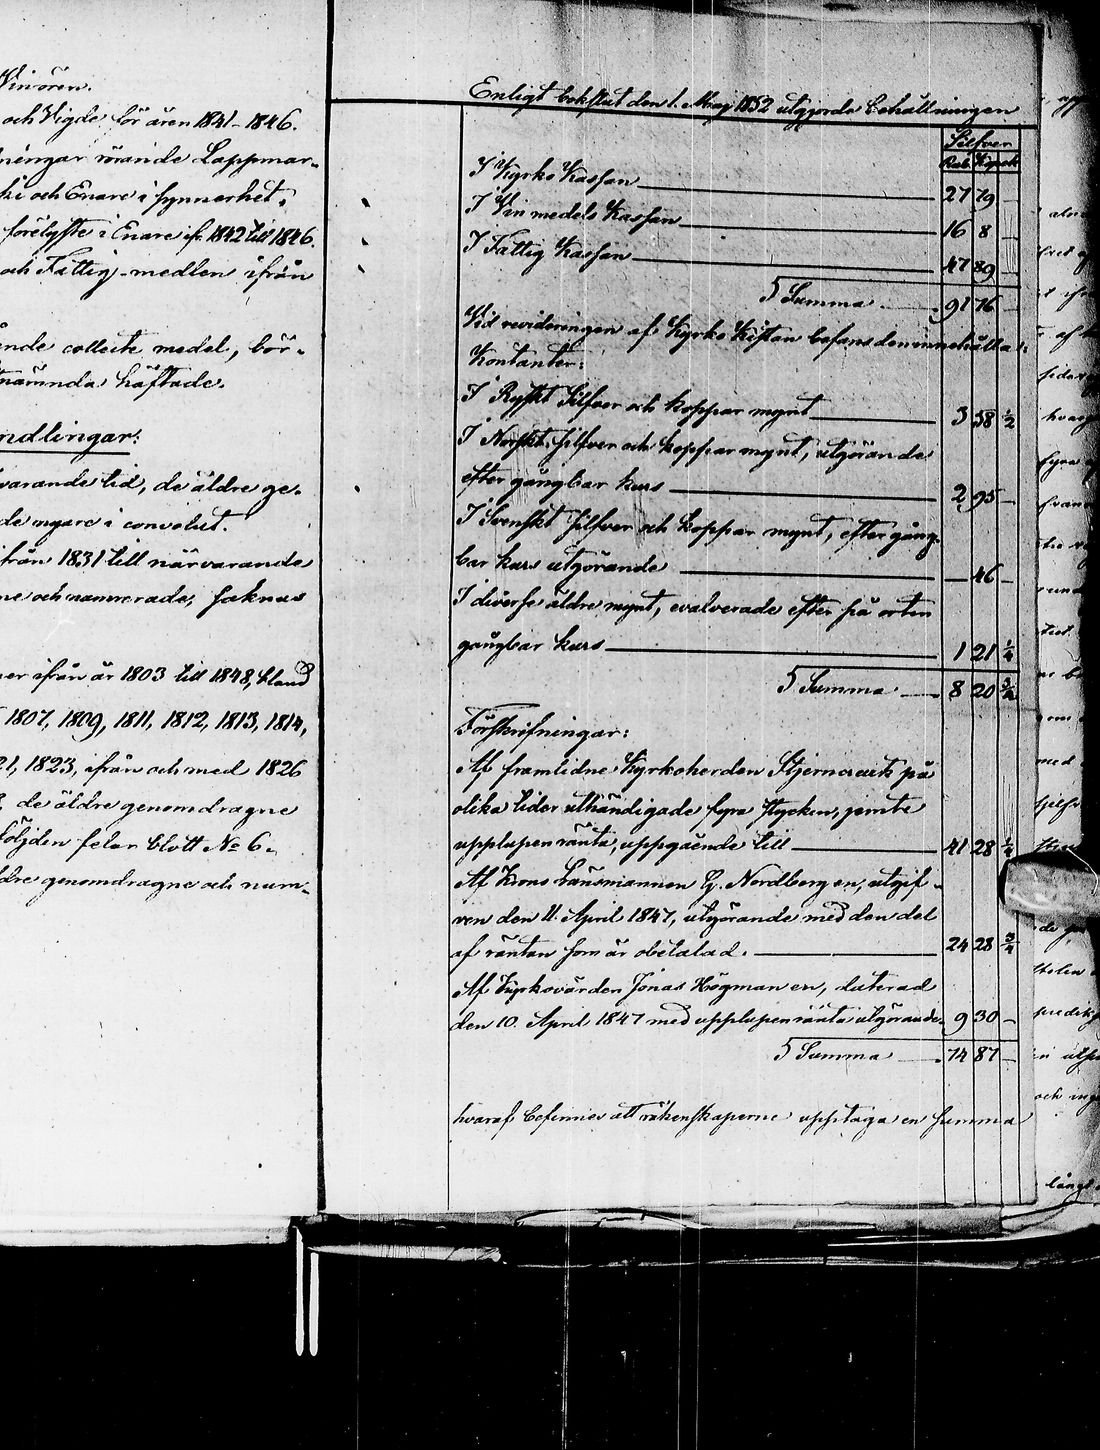 Vinören.
och Vigde för åren 1841-1846.
ningar rörande Lappmar-
ki och Enare i synnerhet.
förelyste i Enare ifr. 1842 till 1846.
och Fattig-medlen ifrån
ende collecte medel, bör-
nämnda häftade.
ndlingar:
varande tid, de äldre ge-
de nyare i convolut.
från 1831 till närvarande
ne och numrerade, saknas
er ifrån år 1803 till 1848, bland
1807, 1809, 1811, 1812, 1813, 1814,
21, 1823, ifrån och med 1826
de äldre genomdragne
följden felar blott No 6.
dre genomdragne och num-
Enligt bokslut den 1. Maj 1852 utgjorde behållningen
Silfver
Rub. Kopek
I Kyrko Kassan 27 79 -
I Vin medels Kassan 16 8 -
I Fattig Kassan 47 89 -
Summa 91 76 -
Vid revideringen af Kyrko Kistan befans den innehålla:
Kontanter:
I Ryskt Silfver och koppar mynt 3 58 1/2
I Norskt Silfver och koppar mynt, utgörande
efter gångbar kurs 2 95 -
I Svenskt Silfver och koppar mynt, efter gång-
bar kurs utgörande - 46 -
I diverse äldre mynt, evalverade efter på orten
gångbar kurs 1 21 1/4
Summa 8 20 3/4
Förskrifningar:
Af framlidne Kyrkoherden Stjerncreutz på
olika tider uthändigade fyra stycken, jemte
upplupen ränta, uppgående till 41 28 1/4
Af Krono Länsmannen G. Nordberg en, utgif-
ven den 11. April 1847, utgörande med den del
af räntan som är obetalad. 24 28 3/4
Af Kyrkovärden Jonas Högman en, daterad
den 10. April 1847 med upplupen ränta utgörande 9 30 -
Summa 74 87 -
hvaraf befinnes att räkenskaperne upptaga en summa